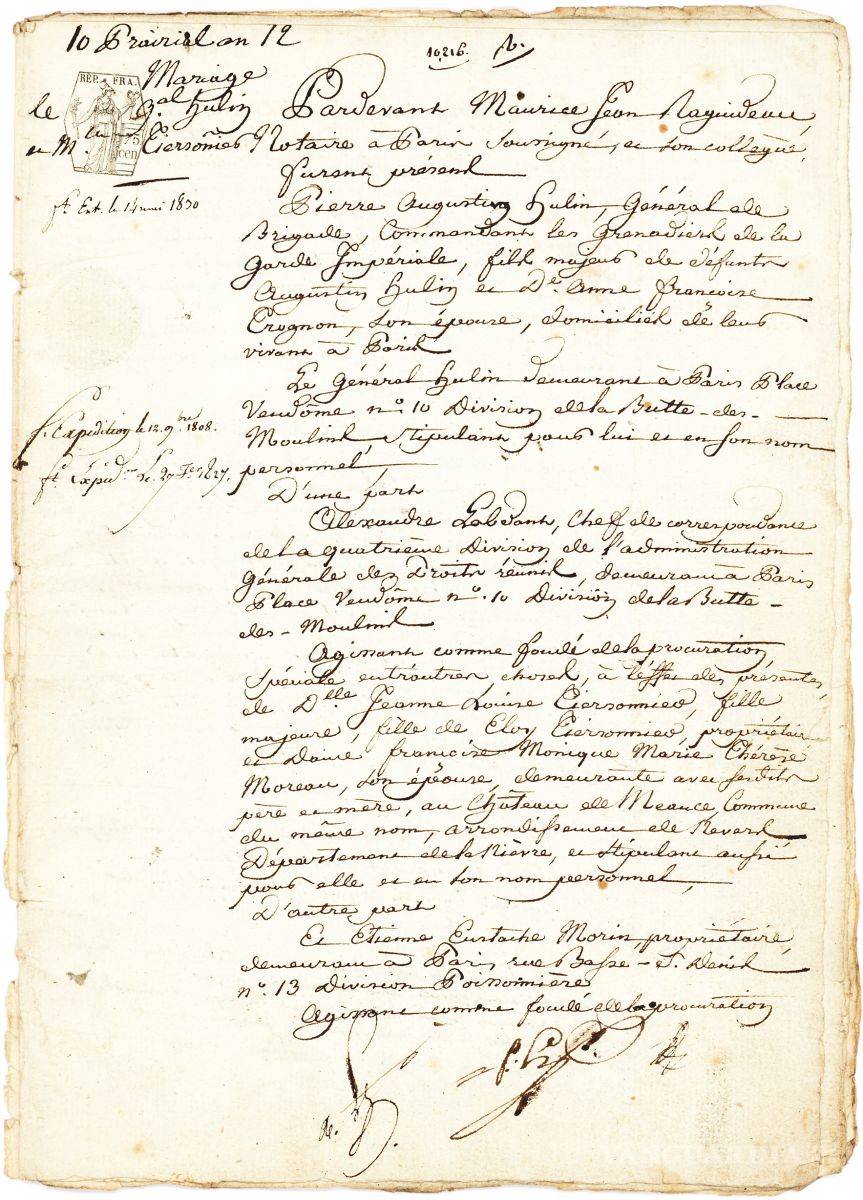 10 Prairial an 12
10,216.
Mariage
REP. FRA.
75
cen
le Gal hulin
et M.elle Tiersonnier
ft. Ext. le 14 mai 1830
Pardevant Maurice Jean Raguideau
Notaire à Paris soussigné, et son collegue,
furent présent
Pierre Augustin hulin, Général de
Brigade, Commandant les Grenadiers de la
Garde Impériale, fils majeur de défunts
Augustin hulin et De. Anne françoise
Trognon, son épouse, domiciliés de leur
vivant à Paris
Le Général hulin demeurant à Paris Place
Vendôme no. 10 Division de la Butte-des-
Moulins stipulant pour lui et en son nom
personnel,
f. Expedition le 12. 9.bre 1808.
ft. Expéd.on Le. 27 1827.
D'une part
Alexandre chef de correspondance
de la quatrième Division de l'administration
Générale des Droits réunis, demeurant à Paris
Place Vendôme no. 10 Division de la Butte-
des-Moulins
Agissant comme fondé de la procuration
spéciale entr'autres choses, à l'effet des présentes,
de Dlle Jeanne Louise Tiersonnier, fille
majeure, fille de Eloy Tiersonnier, propriétaire
et Dame françoise Monique Marie Thérèse
Moreau, son épouse, demeurante avec sesdits
père et mère, au Château de Meauce, Commune
du même nom, arrondissement de Nevers
Département de la Nièvre, et stipulant aussi
pour elle et en son nom personnel,
D'autre part
Et Etienne Eustache Morin, propriétaire,
demeurant à Paris, rue Basse-St. Denis
no. 13 Division Poissonnière
Agissant comme fondé de la procuration